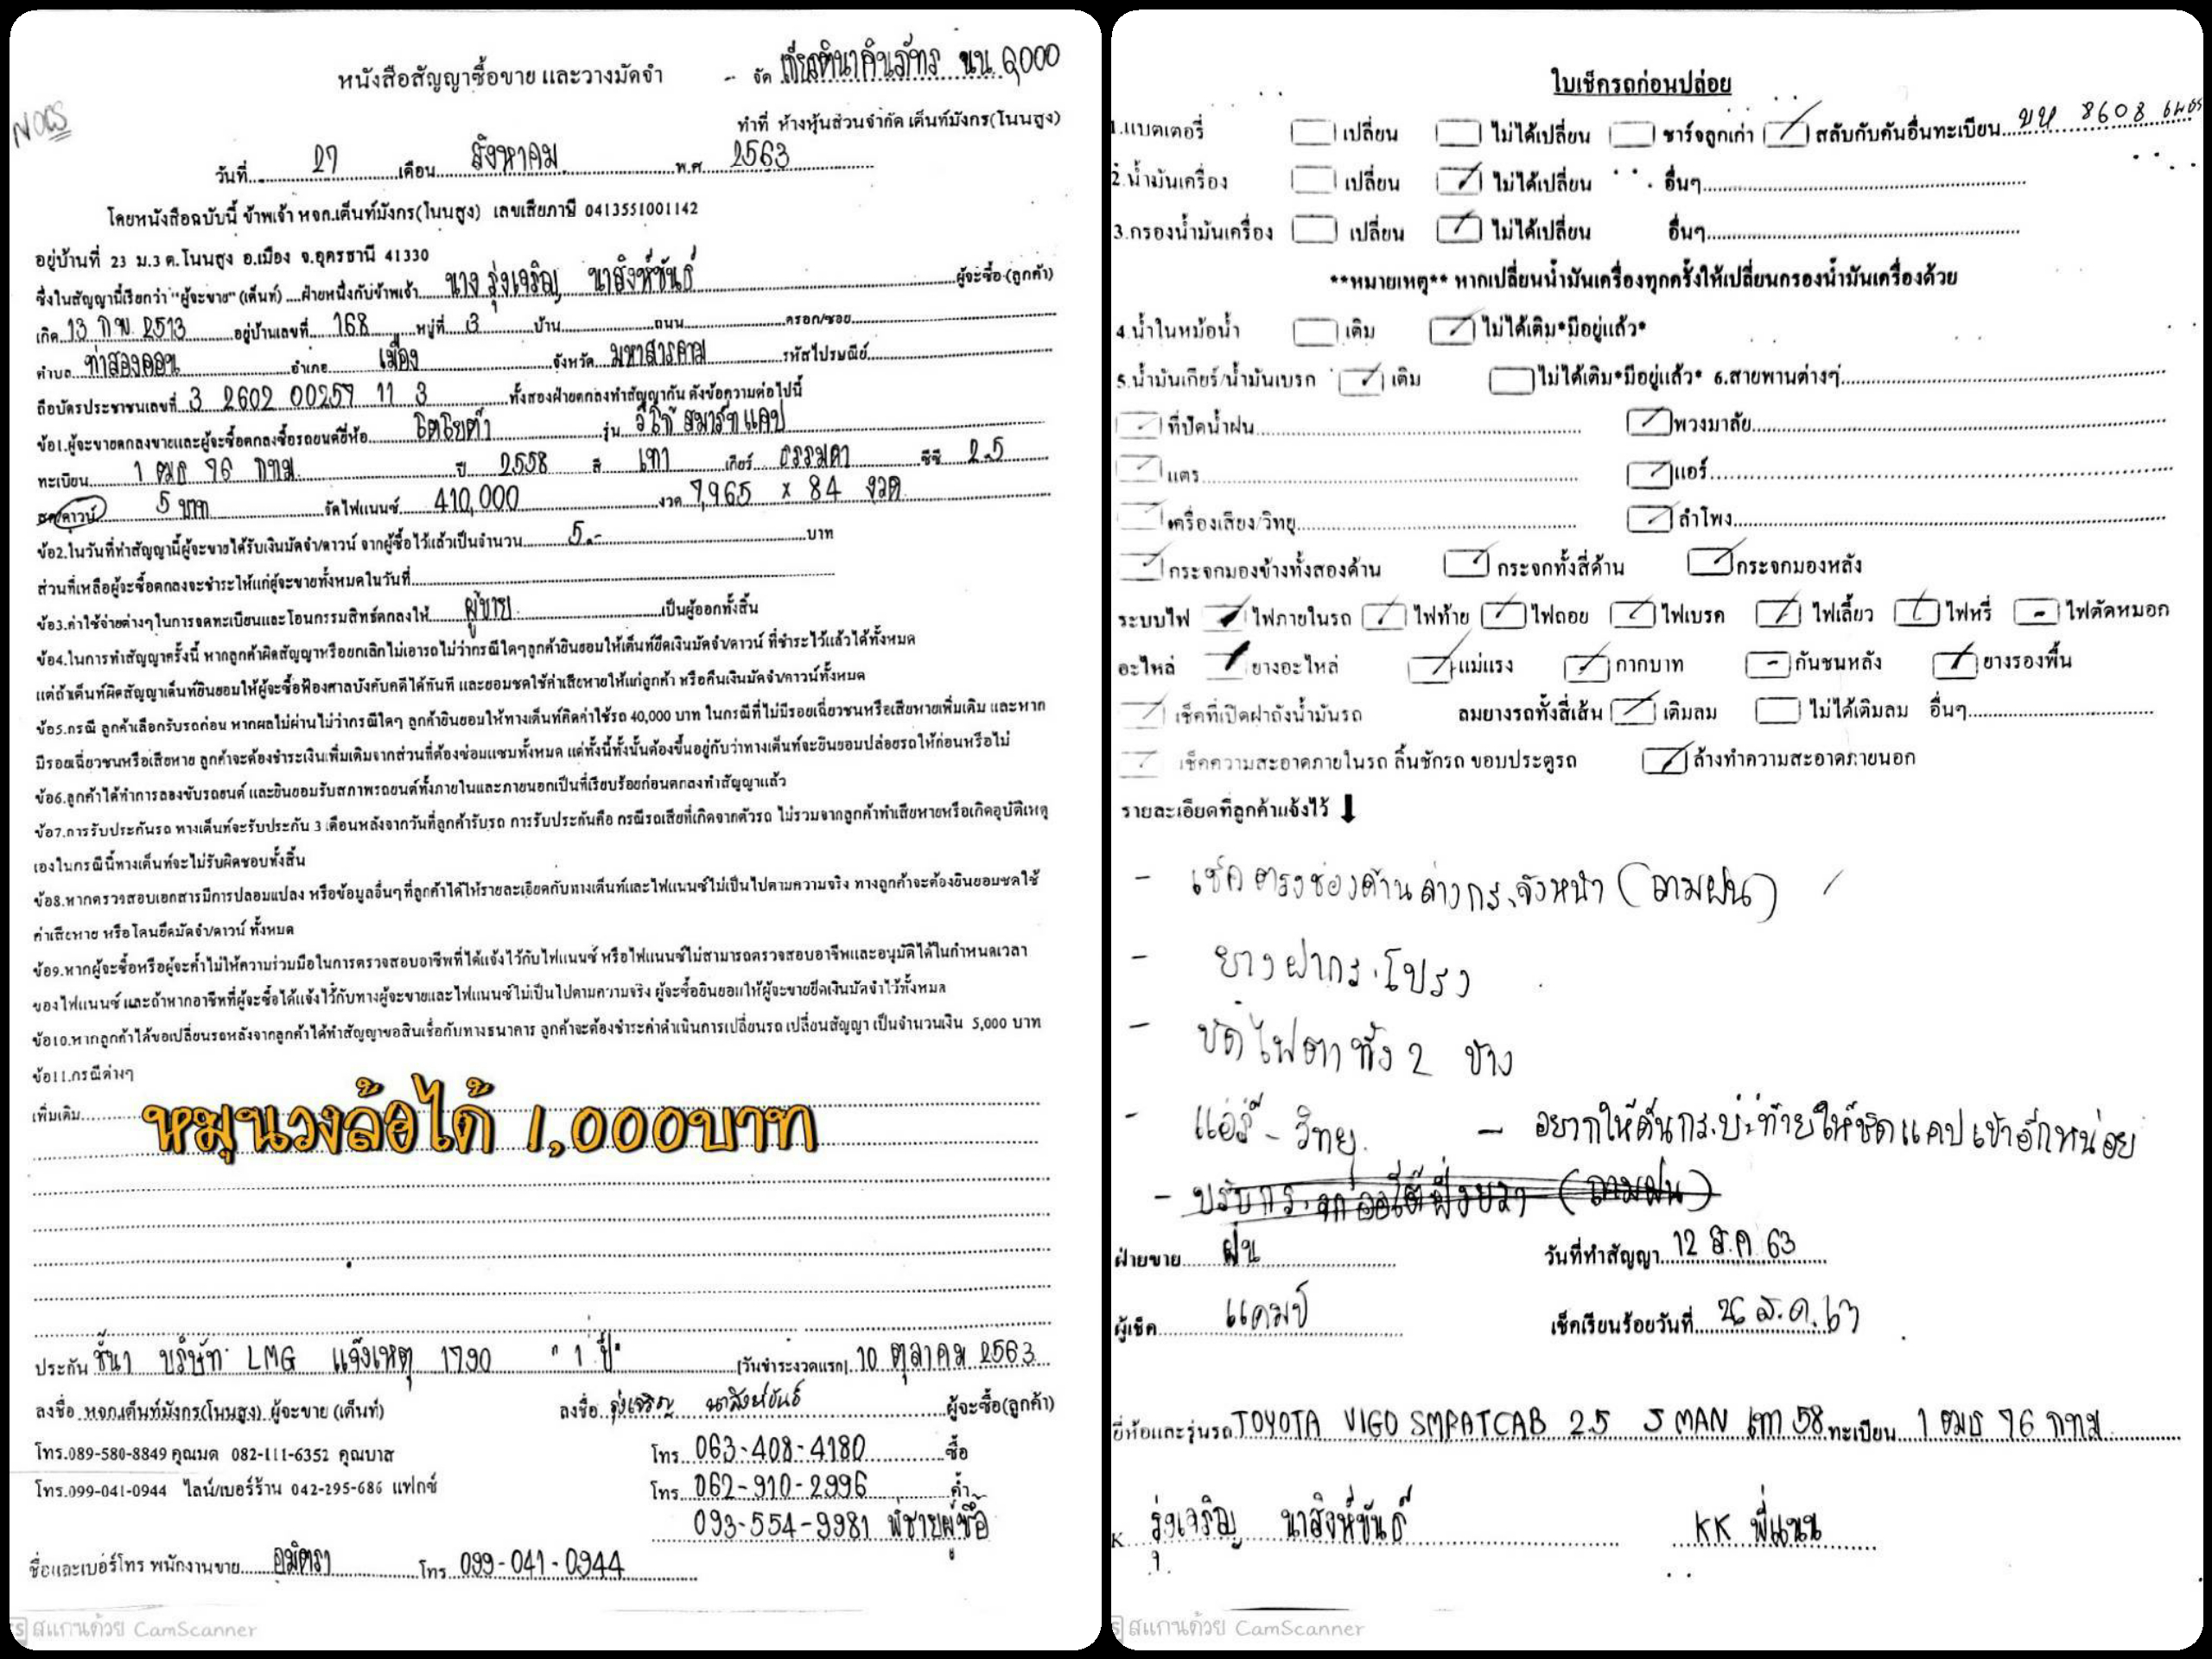 หนังสือสัญญาซื้อขาย และวางมัดจำ
- จัด นน 2,000
NOCS
ทำที่ ห้างหุ้นส่วนจำกัด เต็นท์มังกร(โนนสูง)
วันที่ 27 เดือน สิงหาคม พ.ศ. 2563
โดยหนังสือฉบับนี้ ข้าพเจ้า หจก.เต็นท์มังกร(โนนสูง) เลขเสียภาษี 0413551001142
อยู่บ้านที่ 23 ม.3 ต.โนนสูง อ.เมือง จ.อุดรธานี 41330
ซึ่งในสัญญานี้เรียกว่า "ผู้จะขาย" (เต็นท์) ....ฝ่ายหนึ่งกับข้าพเจ้า นาง รุ่งเจริญ นาสิงห์ขันธ์ ผู้จะซื้อ (ลูกค้า)
เกิด 13 ก.พ. 2513 อยู่บ้านเลขที่ 168 หมู่ที่ 3 บ้าน ถนน ตรอก/ซอย
ตำบล ท่าสองคอน อำเภอ เมือง จังหวัด มหาสารคาม รหัสไปรษณีย์
ถือบัตรประชาชนเลขที่ 3 2602 00257 11 3 ทั้งสองฝ่ายตกลงทำสัญญากัน ดังข้อความต่อไปนี้
ข้อ1.ผู้จะขายตกลงขายและผู้จะซื้อตกลงซื้อรถยนต์ยี่ห้อ โตโยต้า รุ่น วีโก้ สมาร์ทแคป
ทะเบียน 1 ฒธ 76 กทม. ปี 2558 สี เทา เกียร์ ธรรมดา ซีซี 2.5
สด/ดาวน์ 5 บาท จัดไฟแนนซ์ 410,000 งวด 7,965 x 84 งวด
ข้อ2.ในวันที่ทำสัญญานี้ผู้จะขายได้รับเงินมัดจำ/ดาวน์ จากผู้ซื้อไว้แล้วเป็นจำนวน 5.- บาท
ส่วนที่เหลือผู้จะซื้อตกลงจะชำระให้แก่ผู้จะขายทั้งหมดในวันที่
ข้อ3.ค่าใช้จ่ายต่างๆในการจดทะเบียนและโอนกรรมสิทธิ์ตกลงให้ ผู้ขาย เป็นผู้ออกทั้งสิ้น
ข้อ4.ในการทำสัญญาครั้งนี้ หากลูกค้าผิดสัญญาหรือยกเลิกไม่เอารถไม่ว่ากรณีใดๆลูกค้ายินยอมให้เต็นท์ยึดเงินมัดจำ/ดาวน์ ที่ชำระไว้แล้วได้ทั้งหมด
แต่ถ้าเต็นท์ผิดสัญญาเต็นท์ยินยอมให้ผู้จะซื้อฟ้องศาลบังคับคดีได้ทันที และยอมชดใช้ค่าเสียหายให้แก่ลูกค้า หรือคืนเงินมัดจำ/ดาวน์ทั้งหมด
ข้อ5.กรณี ลูกค้าเลือกรับรถก่อน หากผลไม่ผ่านไม่ว่ากรณีใดๆ ลูกค้ายินยอมให้ทางเต็นท์คิดค่าใช้รถ 40,000 บาท ในกรณีที่ไม่มีรอยเฉี่ยวชนหรือเสียหายเพิ่มเติม และหาก
มีรอยเฉี่ยวชนหรือเสียหาย ลูกค้าจะต้องชำระเงินเพิ่มเติมจากส่วนที่ต้องซ่อมแซมทั้งหมด แต่ทั้งนี้ทั้งนั้นต้องขึ้นอยู่กับว่าทางเต็นท์จะยินยอมปล่อยรถให้ก่อนหรือไม่
ข้อ6.ลูกค้าได้ทำการลองขับรถยนต์ และยินยอมรับสภาพรถยนต์ทั้งภายในและภายนอกเป็นที่เรียบร้อยก่อนตกลงทำสัญญาแล้ว
ข้อ7.การรับประกันรถ ทางเต็นท์จะรับประกัน 3 เดือนหลังจากวันที่ลูกค้ารับรถ การรับประกันคือ กรณีรถเสียที่เกิดจากตัวรถ ไม่รวมจากลูกค้าทำเสียหายหรือเกิดอุบัติเหตุ
เองในกรณีนี้ทางเต็นท์จะไม่รับผิดชอบทั้งสิ้น
ข้อ8.หากตรวจสอบเอกสารมีการปลอมแปลง หรือข้อมูลอื่นๆที่ลูกค้าได้ให้รายละเอียดกับทางเต็นท์และไฟแนนซ์ไม่เป็นไปตามความจริง ทางลูกค้าจะต้องยินยอมชดใช้
ค่าเสียหาย หรือโดนยึดมัดจำ/ดาวน์ ทั้งหมด
ข้อ9.หากผู้จะซื้อหรือผู้จะค้ำไม่ให้ความร่วมมือในการตรวจสอบอาชีพที่ได้แจ้งไว้กับไฟแนนซ์ หรือไฟแนนซ์ไม่สามารถตรวจสอบอาชีพและอนุมัติได้ในกำหนดเวลา
ของไฟแนนซ์ และถ้าหากอาชีพที่ผู้จะซื้อได้แจ้งไว้กับทางผู้จะขายและไฟแนนซ์ไม่เป็นไปตามความจริง ผู้จะซื้อยินยอมให้ผู้จะขายยึดเงินมัดจำไว้ทั้งหมด
ข้อ10.หากลูกค้าได้ขอเปลี่ยนรถหลังจากลูกค้าได้ทำสัญญาขอสินเชื่อกับทางธนาคาร ลูกค้าจะต้องชำระค่าดำเนินการเปลี่ยนรถ เปลี่ยนสัญญา เป็นจำนวนเงิน 5,000 บาท
ข้อ11.กรณีต่างๆ
เพิ่มเติม หมุนวงล้อได้ 1,000บาท
ประกัน ชั้น1 บริษัท LMG แจ้งเหตุ 1790 "1 ปี" (วันชำระงวดแรก) 10 ตุลาคม 2563
ลงชื่อ หจก.เต็นท์มังกร(โนนสูง) ผู้จะขาย (เต็นท์) ลงชื่อ รุ่งเจริญ นาสิงห์ขันธ์ ผู้จะซื้อ(ลูกค้า)
โทร.089-580-8849 คุณมด 082-111-6352 คุณบาส โทร. 063-408-4180 ซื้อ
โทร.099-041-0944 ไลน์/เบอร์ร้าน 042-295-686 แฟกซ์ โทร. 062-910-2996 ค้ำ
093-554-9981 พี่ชายผู้ซื้อ
ชื่อและเบอร์โทร พนักงานขาย โทร 099-041-0944
สแกนด้วย CamScanner
ใบเช็ครถก่อนปล่อย
1.แบตเตอรี่ เปลี่ยน ไม่ได้เปลี่ยน ชาร์จลูกเก่า สลับกับคันอื่นทะเบียน 8608
2.น้ำมันเครื่อง เปลี่ยน ไม่ได้เปลี่ยน อื่นๆ
3.กรองน้ำมันเครื่อง เปลี่ยน ไม่ได้เปลี่ยน อื่นๆ
**หมายเหตุ** หากเปลี่ยนน้ำมันเครื่องทุกครั้งให้เปลี่ยนกรองน้ำมันเครื่องด้วย
4.น้ำในหม้อน้ำ เติม ไม่ได้เติม*มีอยู่แล้ว*
5.น้ำมันเกียร์/น้ำมันเบรก เติม ไม่ได้เติม*มีอยู่แล้ว* 6.สายพานต่างๆ
ที่ปัดน้ำฝน พวงมาลัย
แตร แอร์
เครื่องเสียง/วิทยุ ลำโพง
กระจกมองข้างทั้งสองด้าน กระจกทั้งสี่ด้าน กระจกมองหลัง
ระบบไฟ ไฟภายในรถ ไฟท้าย ไฟถอย ไฟเบรค ไฟเลี้ยว ไฟหรี่ ไฟตัดหมอก
อะไหล่ ยางอะไหล่ แม่แรง กากบาท กันชนหลัง ยางรองพื้น
เช็คที่เปิดฝาถังน้ำมันรถ ลมยางรถทั้งสี่เส้น เติมลม ไม่ได้เติมลม อื่นๆ
เช็คความสะอาดภายในรถ ลิ้นชักรถ ขอบประตูรถ ล้างทำความสะอาดภายนอก
รายละเอียดที่ลูกค้าแจ้งไว้
- เช็คตรงช่องด้านล่างกระจังหน้า (ถามฝน)
- ยางฝากระโปรง
- ขัดไฟตาทั้ง 2 ข้าง
- แอร์ - วิทยุ - อยากให้ดันกระบะท้ายให้ชิดแคปเข้าอีกหน่อย
ฝ่ายขาย ฝน วันที่ทำสัญญา 12 ส.ค. 63
ผู้เช็ค แคมป์ เช็คเรียบร้อยวันที่ 26 ส.ค. 63
ยี่ห้อและรุ่นรถ TOYOTA VIGO SMRATCAB 2.5 J MAN เทา 58 ทะเบียน 1 ฒธ 76 กทม.
K รุ่งเจริญ นาสิงห์ขันธ์ KK พี่แนน
สแกนด้วย CamScanner